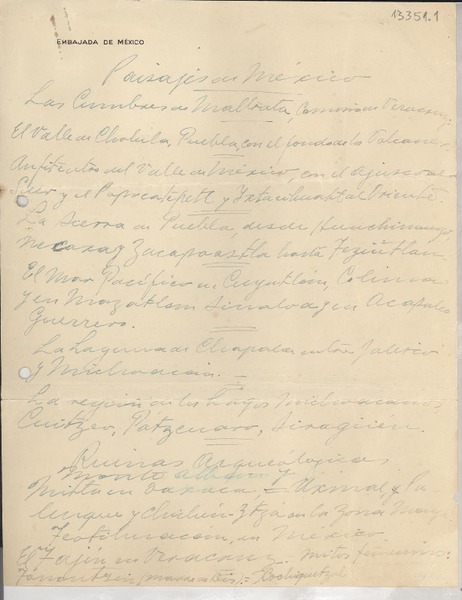 13351.1
EMBAJADA DE MÉXICO
Paisajes de México
Las Cumbres de Maltrata camino de Veracruz
El Valle de Cholula, Puebla, con el fondo de los Volcanes
Anfiteatro del Valle de México, con el Ajusco al
Sur y el Popocatepetl y Ixtacihuatl al Oriente.
La Sierra de Puebla, desde Huauchinango
Necaxa y Zacapoaxtla hasta Teziutlan
El Mar Pacífico en Cuyutlán, Colima
y en Mazatlan Sinaloa y en Acapulco
Guerrero.
La Laguna de Chapala entre Jalisco
y Michoacán.
La región de los Lagos Michoacanos,
Cuitzeo, Patzcuaro, Siragüen.
Ruinas Arqueológicas
Monte Alban y
Mitla en Oaxaca = Uxmal y Pa-
lenque y Chichén-Itza en la Zona Maya
Teotihuacan, en México
El Tajín en Veracruz. Mitos femeninos:
Tonantzin (madre de Dios) = Xochiquetzal